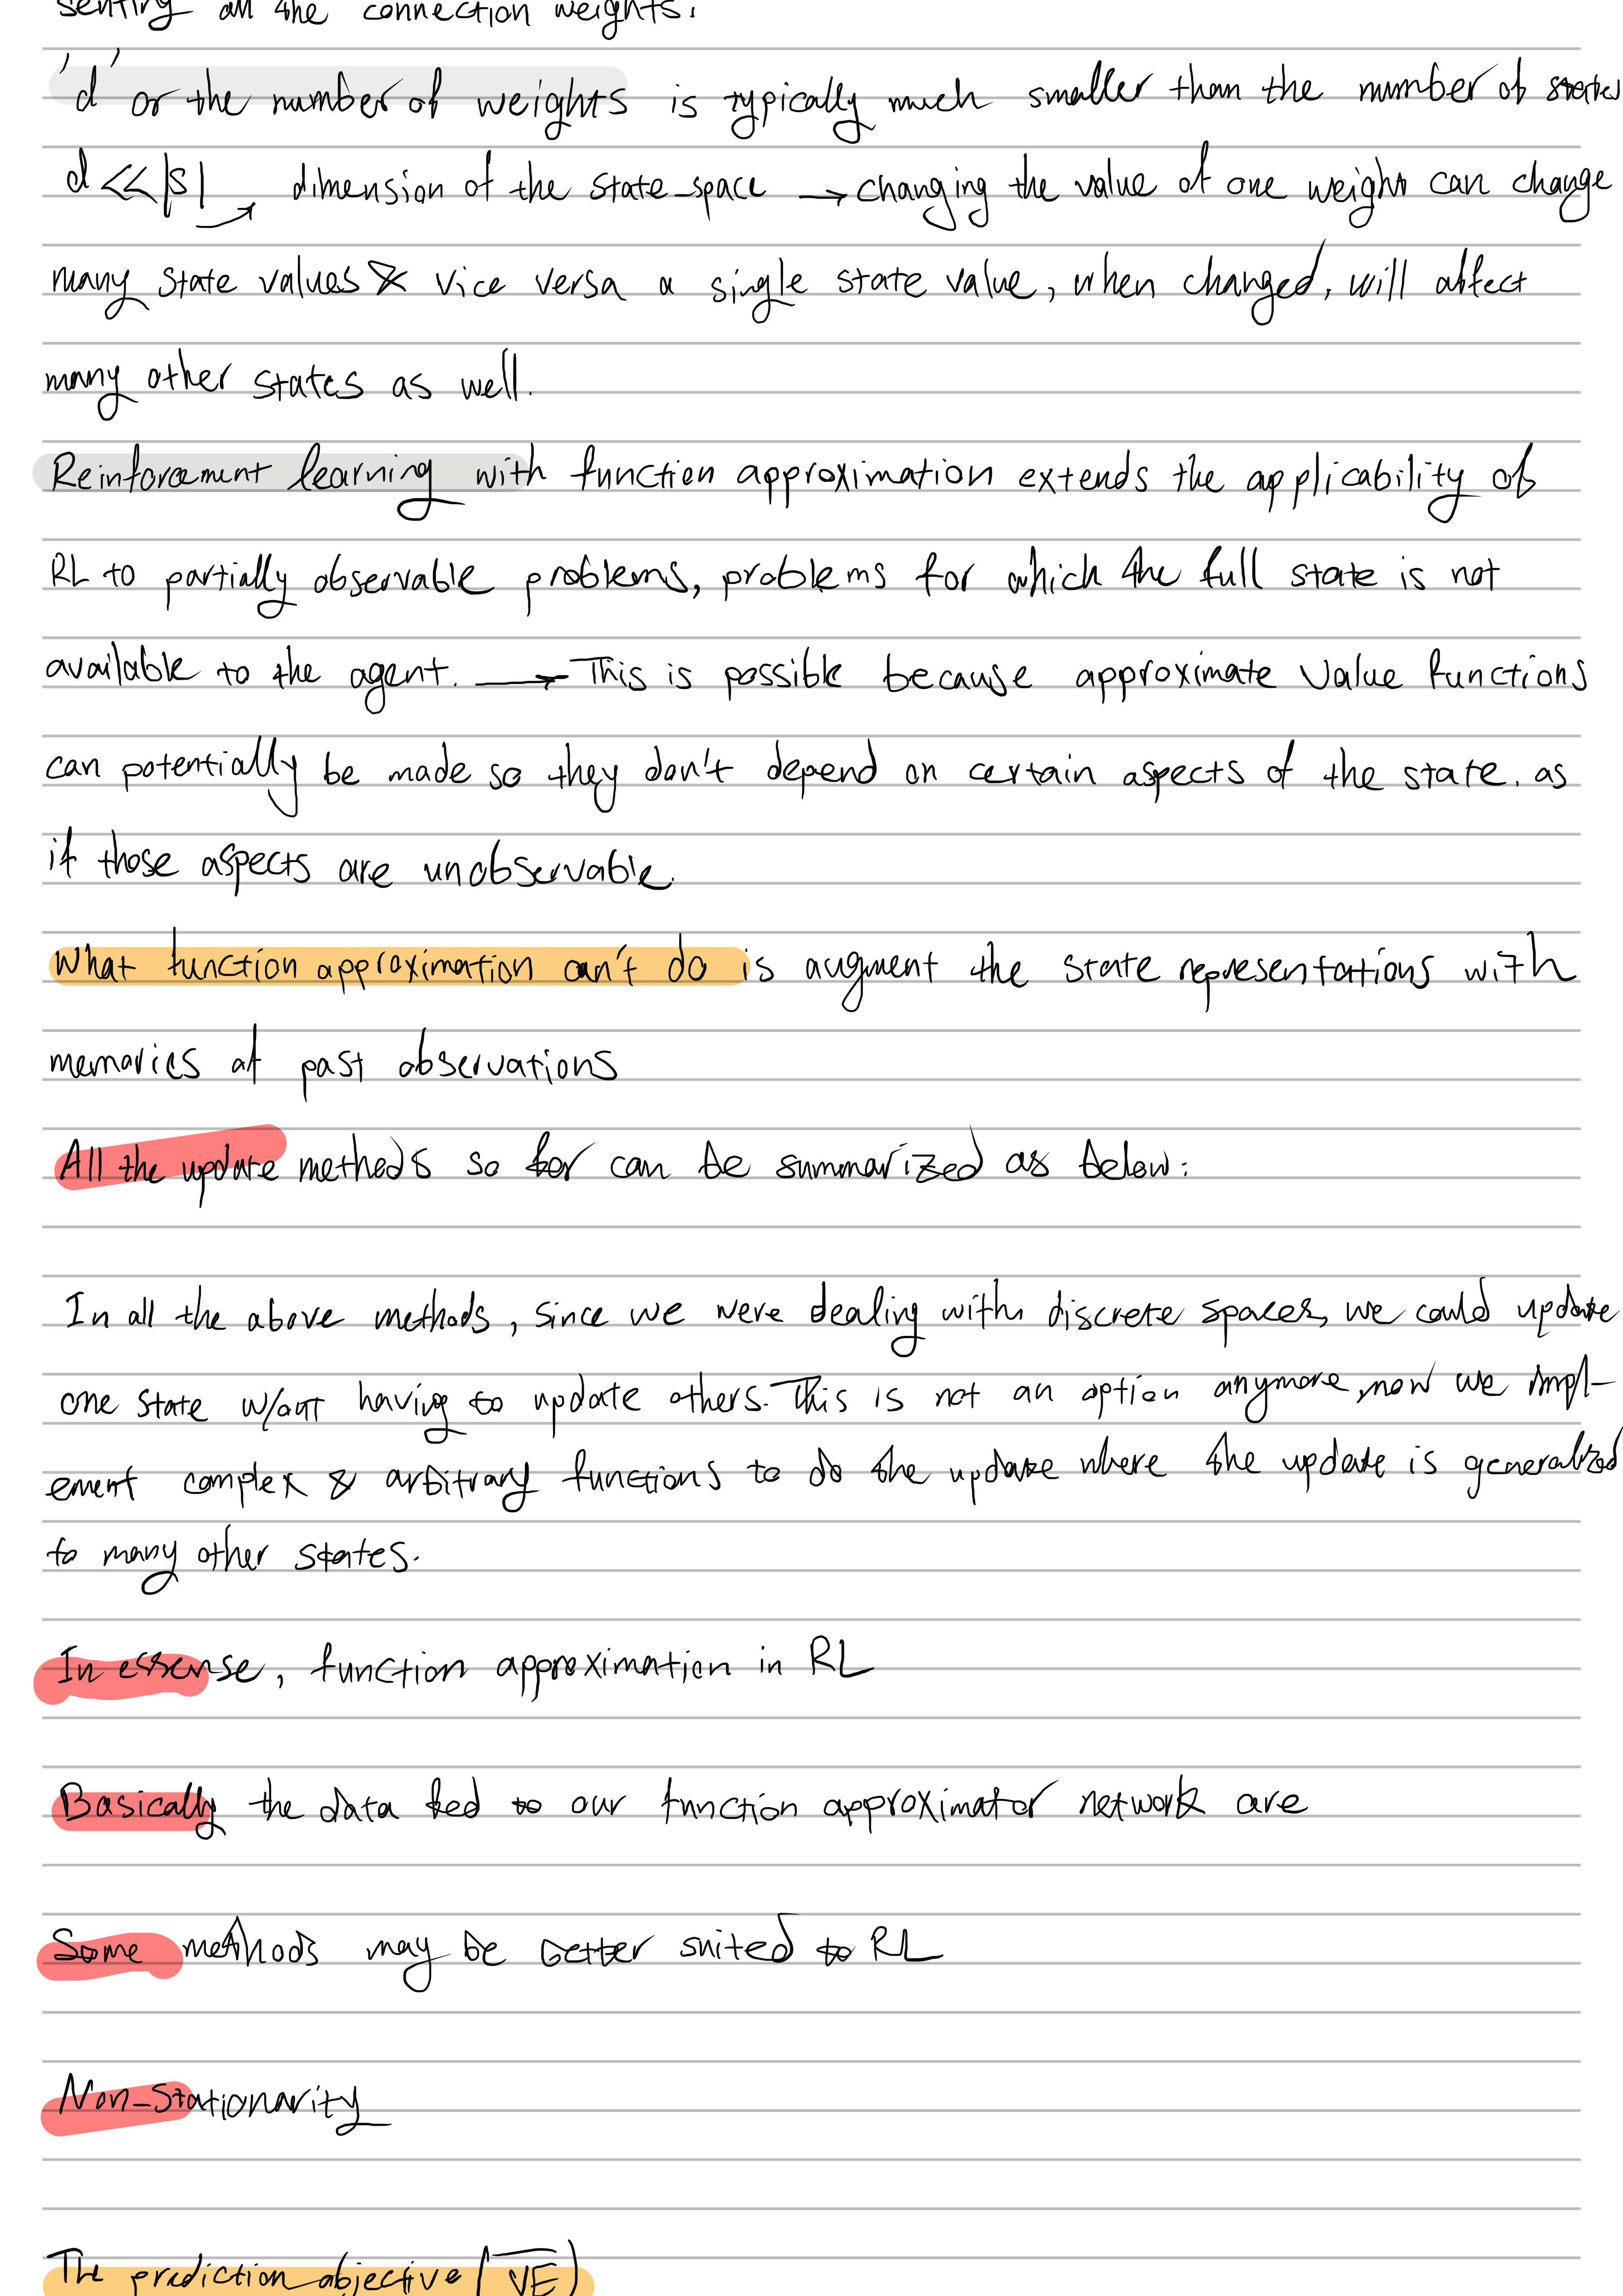 senting all the connection weights.
'd' or the number of weights is typically much smaller than the number of states
d << |S| → dimension of the state-space → changing the value of one weight can change
many state values & vice versa a single state value, when changed, will affect
many other states as well.
Reinforcement learning with function approximation extends the applicability of
RL to partially observable problems, problems for which the full state is not
available to the agent. → This is possible because approximate value functions
can potentially be made so they don't depend on certain aspects of the state. as
if those aspects are unobservable.
What function approximation can't do is augment the state representations with
memories of past observations
All the update methods so far can be summarized as below:
In all the above methods, since we were dealing with discrete spaces, we could update
one state w/out having to update others. This is not an option anymore, now we impl-
ement complex & arbitrary functions to do the update where the update is generalized
to many other states.
In essense, function approximation in RL
Basically the data fed to our function approximator network are
Some methods may be better suited to RL
Non-Stationarity
The prediction objective (V̅E̅)